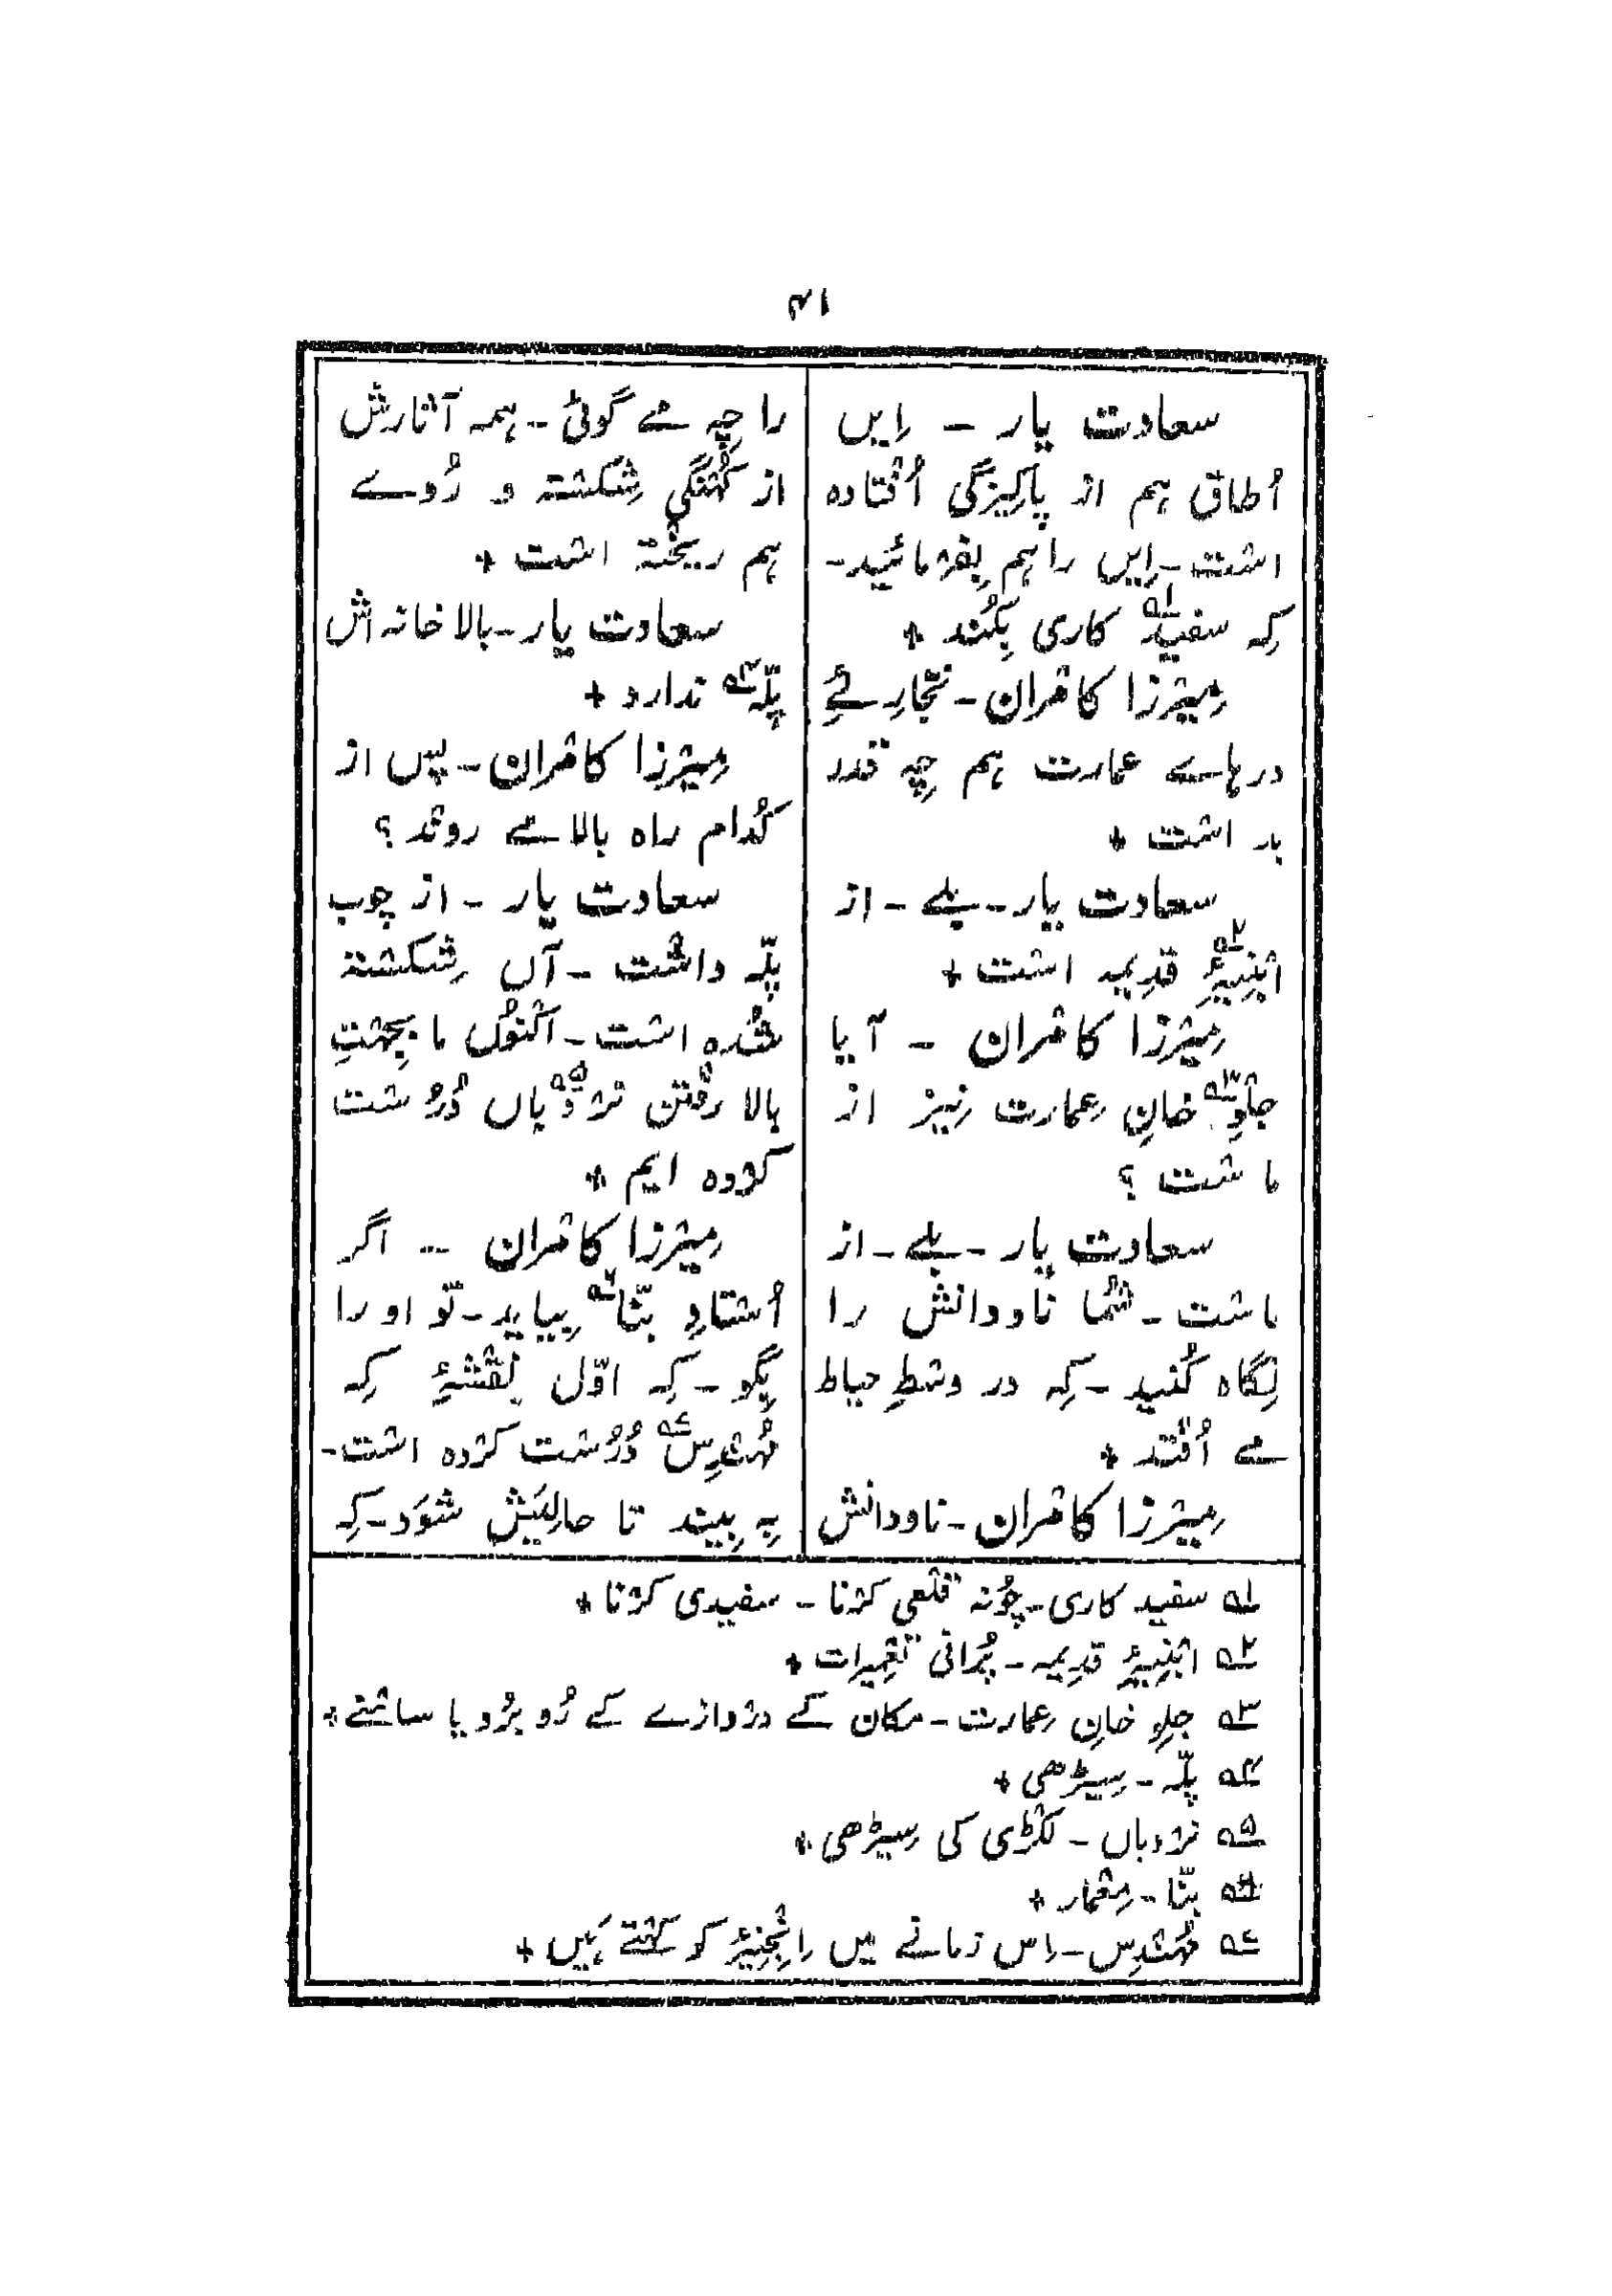 ۴۱
سعادت یار - اِیں
اُطاق ہم از پاکیزگی اُفتادہ
است - اِیں را ہم بِفرمائید -
کِہ سفید۱؎ کاری بِکُنند +
مِیرزا کامران - نجّارئِے
درہاے عمارت ہم چِہ قدر
بار است +
سعادت یار - بلے - از
ابنِیۂِ۲؎ قدِیمہ است +
مِیرزا کامران - آیا
جلَوِ۳؎ خانِ عِمارت نِیز از
ماست ؟
سعادت یار - بلے - از
ماست - شُما ناودانش را
نِگاہ کُنید - کِہ در وسطِ حیاط
مے اُفتد +
مِیرزا کامران - ناودانش
را چِہ مے گوئی - ہمہ آثارش
از کُہنگی شِکستہ و رُوے
ہم ریختہ است +
سعادت یار - بالا خانہ اش
پِلّہ۴؎ ندارد +
مِیرزا کامران - پس از
کُدام راہ بالا مے روند ؟
سعادت یار - از چوب
پِلّہ داشت - آں شِکستہ
شُدہ است - اکنُوں ما بجہتِ
بالا رفتن نردُ۵؎باں دُرُست
کردہ ایم +
مِیرزا کامران - اگر
اُستادِ بنّا۶؎ بِیاید - تو اورا
بِگو - کِہ اوّل نقشۂِ کِہ
مُہندِس۷؎ دُرُست کردہ است -
بِہ بِیند تا حالِیَش شوَد - کِہ
۱؎ سفید کاری - چُونہ قلعی کرنا - سفیدی کرنا +
۲؎ ابنِیۂِ قدِیمہ - پُرانی تعمِیرات +
۳؎ جلَوِ خانِ عِمارت - مکان کے دروازے کے رُو برُو یا سامنے +
۴؎ پِلّہ - سِیڑھی +
۵؎ نردباں - لکڑی کی سِیڑھی +
۶؎ بنّا - مِعمار +
۷؎ مُہندِس - اِس زمانے میں اِنجِنیئر کو کہتے ہَیں +